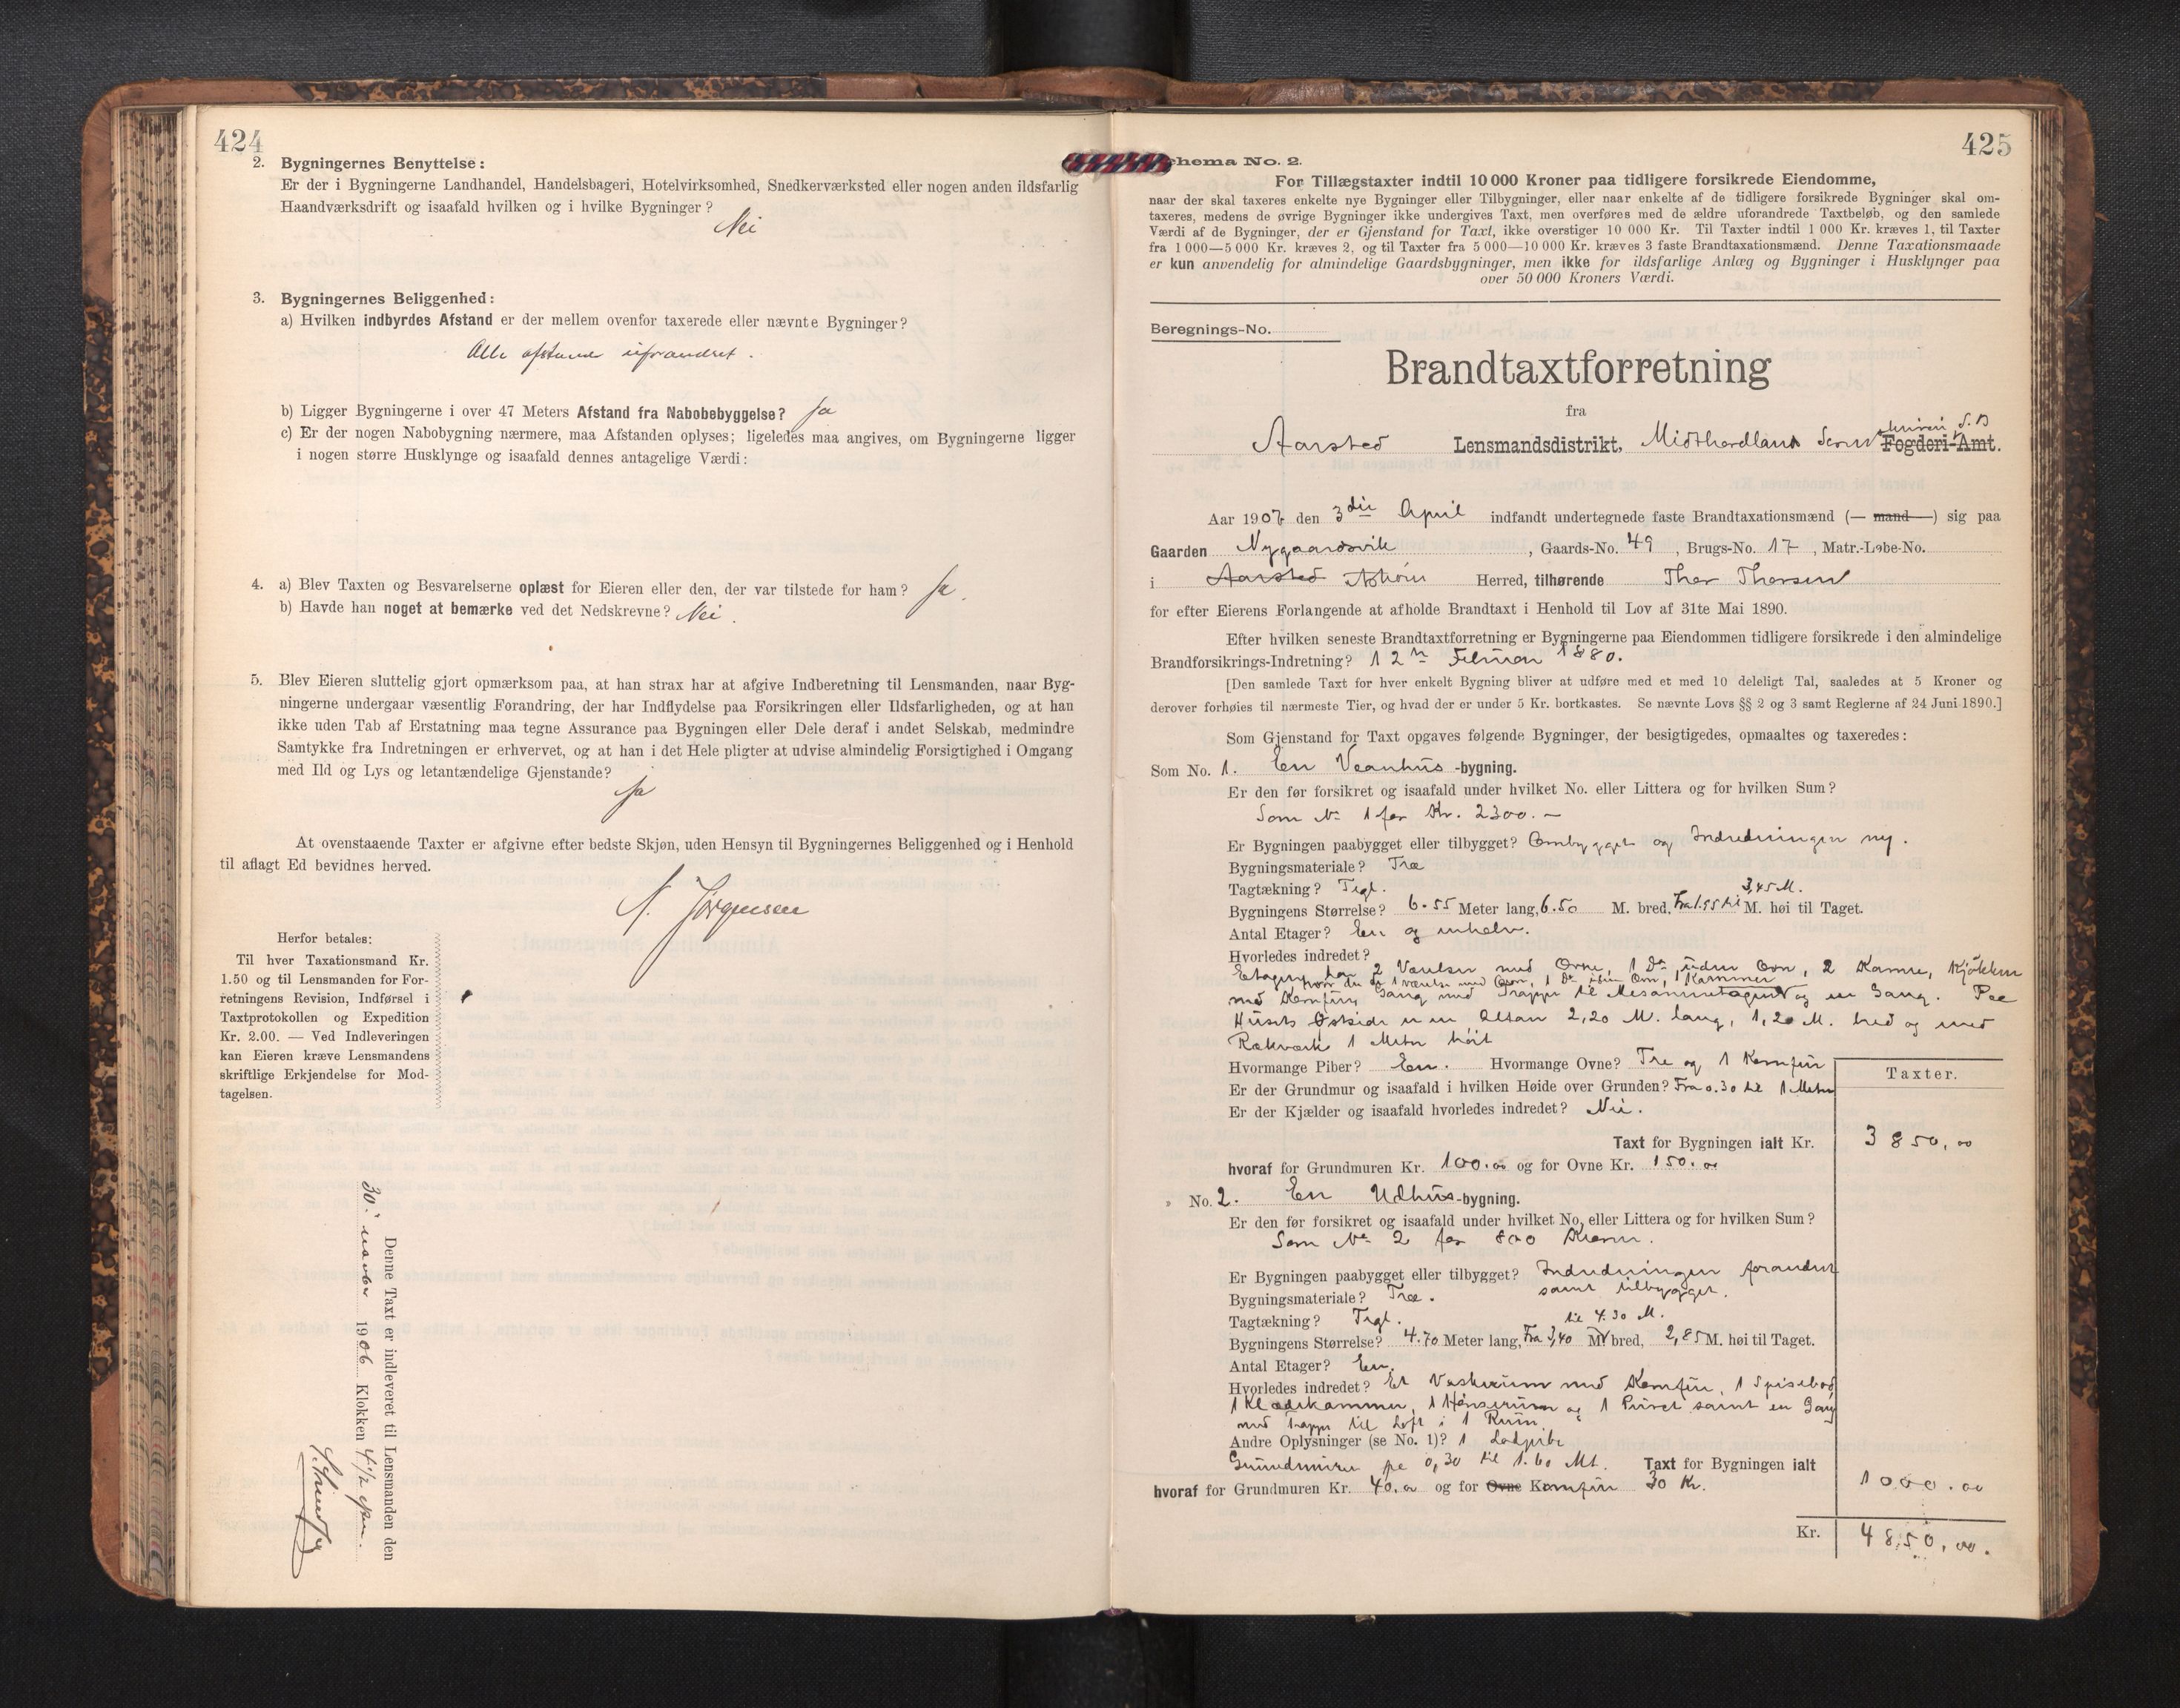 424
2. Bygningernes Benyttelse:
Er der i Bygningerne Landhandel, Handelsbageri, Hotelvirksomhed, Snedkerværksted eller nogen anden ildsfarlig
Haandværksdrift og isaafald hvilken og i hvilke Bygninger?
Nei
3. Bygningernes Beliggenhed:
a) Hvilken indbyrdes Afstand er der mellem ovenfor taxerede eller nævnte Bygninger?
Alle afstande uforandret.
b) Ligger Bygningerne i over 47 Meters Afstand fra Nabobebyggelse? Ja
c) Er der nogen Nabobygning nærmere, maa Afstanden oplyses; ligeledes maa angives, om Bygningerne ligger
i nogen større Husklynge og isaafald dennes antagelige Værdi:
4. a) Blev Taxten og Besvarelserne oplæst for Eieren eller den, der var tilstede for ham? Ja.
b) Havde han noget at bemærke ved det Nedskrevne? Nei.
5. Blev Eieren sluttelig gjort opmærksom paa, at han strax har at afgive Indberetning til Lensmanden, naar Byg-
ningerne undergaar væsentlig Forandring, der har Indflydelse paa Forsikringen eller Ildsfarligheden, og at han
ikke uden Tab af Erstatning maa tegne Assurance paa Bygningen eller Dele deraf i andet Selskab, medmindre
Samtykke fra Indretningen er erhvervet, og at han i det Hele pligter at udvise almindelig Forsigtighed i Omgang
med Ild og Lys og letantændelige Gjenstande?
Ja
At ovenstaaende Taxter er afgivne efter bedste Skjøn, uden Hensyn til Bygningernes Beliggenhed og i Henhold
til aflagt Ed bevidnes herved.
N. Jörgensen
Herfor betales:
Til hver Taxationsmand Kr.
1.50 og til Lensmanden for For-
retningens Revision, Indførsel i
Taxtprotokollen og Expedition
Kr. 2.00. — Ved Indleveringen
kan Eieren kræve Lensmandens
skriftlige Erkjendelse for Mod-
tagelsen.
Denne Taxt er indleveret til Lensmanden den
30. 1906 Klokken 4 1/2
425
Schema No. 2.
For Tillægstaxter indtil 10 000 Kroner paa tidligere forsikrede Eiendomme,
naar der skal taxeres enkelte nye Bygninger eller Tilbygninger, eller naar enkelte af de tidligere forsikrede Bygninger skal om-
taxeres, medens de øvrige Bygninger ikke undergives Taxt, men overføres med de ældre uforandrede Taxtbeløb, og den samlede
Værdi af de Bygninger, der er Gjenstand for Taxt, ikke overstiger 10 000 Kr. Til Taxter indtil 1 000 Kr. kræves 1, til Taxter
fra 1 000—5 000 Kr. kræves 2, og til Taxter fra 5 000—10 000 Kr. kræves 3 faste Brandtaxationsmænd. Denne Taxationsmaade
er kun anvendelig for almindelige Gaardsbygninger, men ikke for ildsfarlige Anlæg og Bygninger i Husklynger paa
over 50 000 Kroners Værdi.
Beregnings-No.
Brandtaxtforretning
fra
Aarsted Lensmandsdistrikt, Midthordland Fogderi-Amt.
Aar 1907 den 3die April indfandt undertegnede faste Brandtaxationsmænd (— mand —) sig paa
Gaarden Nygaardsvik, Gaards-No. 49, Brugs-No. 17, Matr.-Løbe-No.
i Aarsted Askøen Herred, tilhørende Thor Thorsen
for efter Eierens Forlangende at afholde Brandtaxt i Henhold til Lov af 31te Mai 1890.
Efter hvilken seneste Brandtaxtforretning er Bygningerne paa Eiendommen tidligere forsikrede i den almindelige
Brandforsikrings-Indretning? 12te Februar 1880.
[Den samlede Taxt for hver enkelt Bygning bliver at udføre med et med 10 deleligt Tal, saaledes at 5 Kroner og
derover forhøies til nærmeste Tier, og hvad der er under 5 Kr. bortkastes. Se nævnte Lovs §§ 2 og 3 samt Reglerne af 24 Juni 1890.]
Som Gjenstand for Taxt opgaves følgende Bygninger, der besigtigedes, opmaaltes og taxeredes:
Som No. 1. En Vaanhus-bygning.
Er den før forsikret og isaafald under hvilket No. eller Littera og for hvilken Sum?
Som No 1 for Kr. 2300.—
Er Bygningen paabygget eller tilbygget? Ombygget og Indredningen ny.
Bygningsmateriale? Træ
Tagtækning? Tegl.
3,45 M.
Bygningens Størrelse? 6.55 Meter lang, 6.50 M. bred, Fra 1.95 til M. høi til Taget.
Antal Etager? En og enhalv.
Hvorledes indret? 
Etagen har 2 Værelser med Ovne, 1 Do uden Ovn, 2 Kamre, Kjökken
hvor du er 1 værelse med Ovn, 1 Do uden Ovn, 1 Kammer
med Komfur, Gang med Trappe til Mesanınetagen og en Gang. Paa
Husets Østside er en Altan 2,20 M. lang, 1,20 M. bred og med
Rækværk 1 Meter höit
Hvormange Piber? En. Hvormange Ovne? Tre og 1 Komfur
Er der Grundmur og isaafald i hvilken Høide over Grunden? Fra 0.30 til 1 Meter
Er der Kjælder og isaafald hvorledes indredet? Nei.
Taxter.
Taxt for Bygningen ialt Kr. 3850,00
hvoraf for Grundmuren Kr. 100.00 og for Ovne Kr. 150.00
" No. 2. En Udhus-bygning.
Er den før forsikret og isaafald under hvilket No. eller Littera og for hvilken Sum?
Som No 2 for 800 Kroner.
Er Bygningen paabygget eller tilbygget? Indredningen forandret
samt tilbygget.
Bygningsmateriale? Træ.
Tagtækning? Tegl. til 4.30 M.
Bygningens Størrelse? 4.70 Meter lang, Fra 3,40 M. bred, 2,85 M. høi til Taget.
Antal Etager? En.
Hvorledes indredet? Et Vaskerum med Komfur, 1 Spisebod
1 Klædekammer, 1 Hönserum og 1 Privet samt en Gang
med Trappe til Loft i 1 Rum
Andre Oplysninger (se No. 1)? 1 Ladpibe
Grundmuren på 0,30 til 1.60 Mt. Taxt for Bygningen ialt
hvoraf for Grundmuren Kr. 40.00 og for Ovne Komfur 30 Kr. 1000.00
Kr. 4850,00.